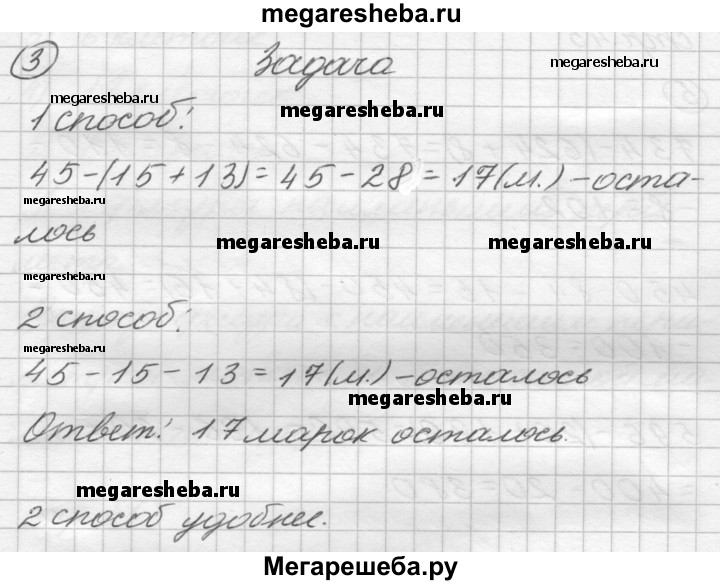 megaresheba.ru
3 Задача megaresheba.ru
megaresheba.ru
1 способ: megaresheba.ru
45-(15+13)=45-28=17(м.)-оста-
megaresheba.ru
лось megaresheba.ru megaresheba.ru
megaresheba.ru
2 способ:
megaresheba.ru
45-15-13=17(м.)-осталось
megaresheba.ru
Ответ: 17 марок осталось.
megaresheba.ru
2 способ удобнее.
Мегарешеба.ру